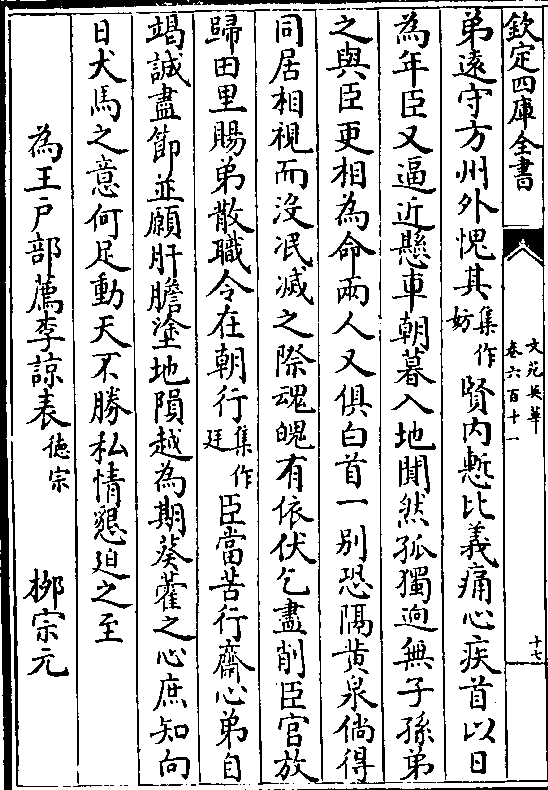 欽定四庫全書
文苑英華
卷六百十一
十七
弟遠守方州外愧其集作妨賢内慙比義痛心疾首以日
為年臣又逼近懸車朝暮入地闃然孤獨迥無子孫弟
之與臣更相為命兩人又俱白首一别恐隔黄泉倘得
同居相視而沒泯滅之際魂魄有依伏乞盡削臣官放
歸田里賜弟散職令在朝行集作廷臣當苦行齋心弟自
竭誠盡節並願肝膽塗地隕越為期葵藿之心庶知向
日犬馬之意何足動天不勝私情懇迫之至
為王户部薦李諒表德宗 柳宗元